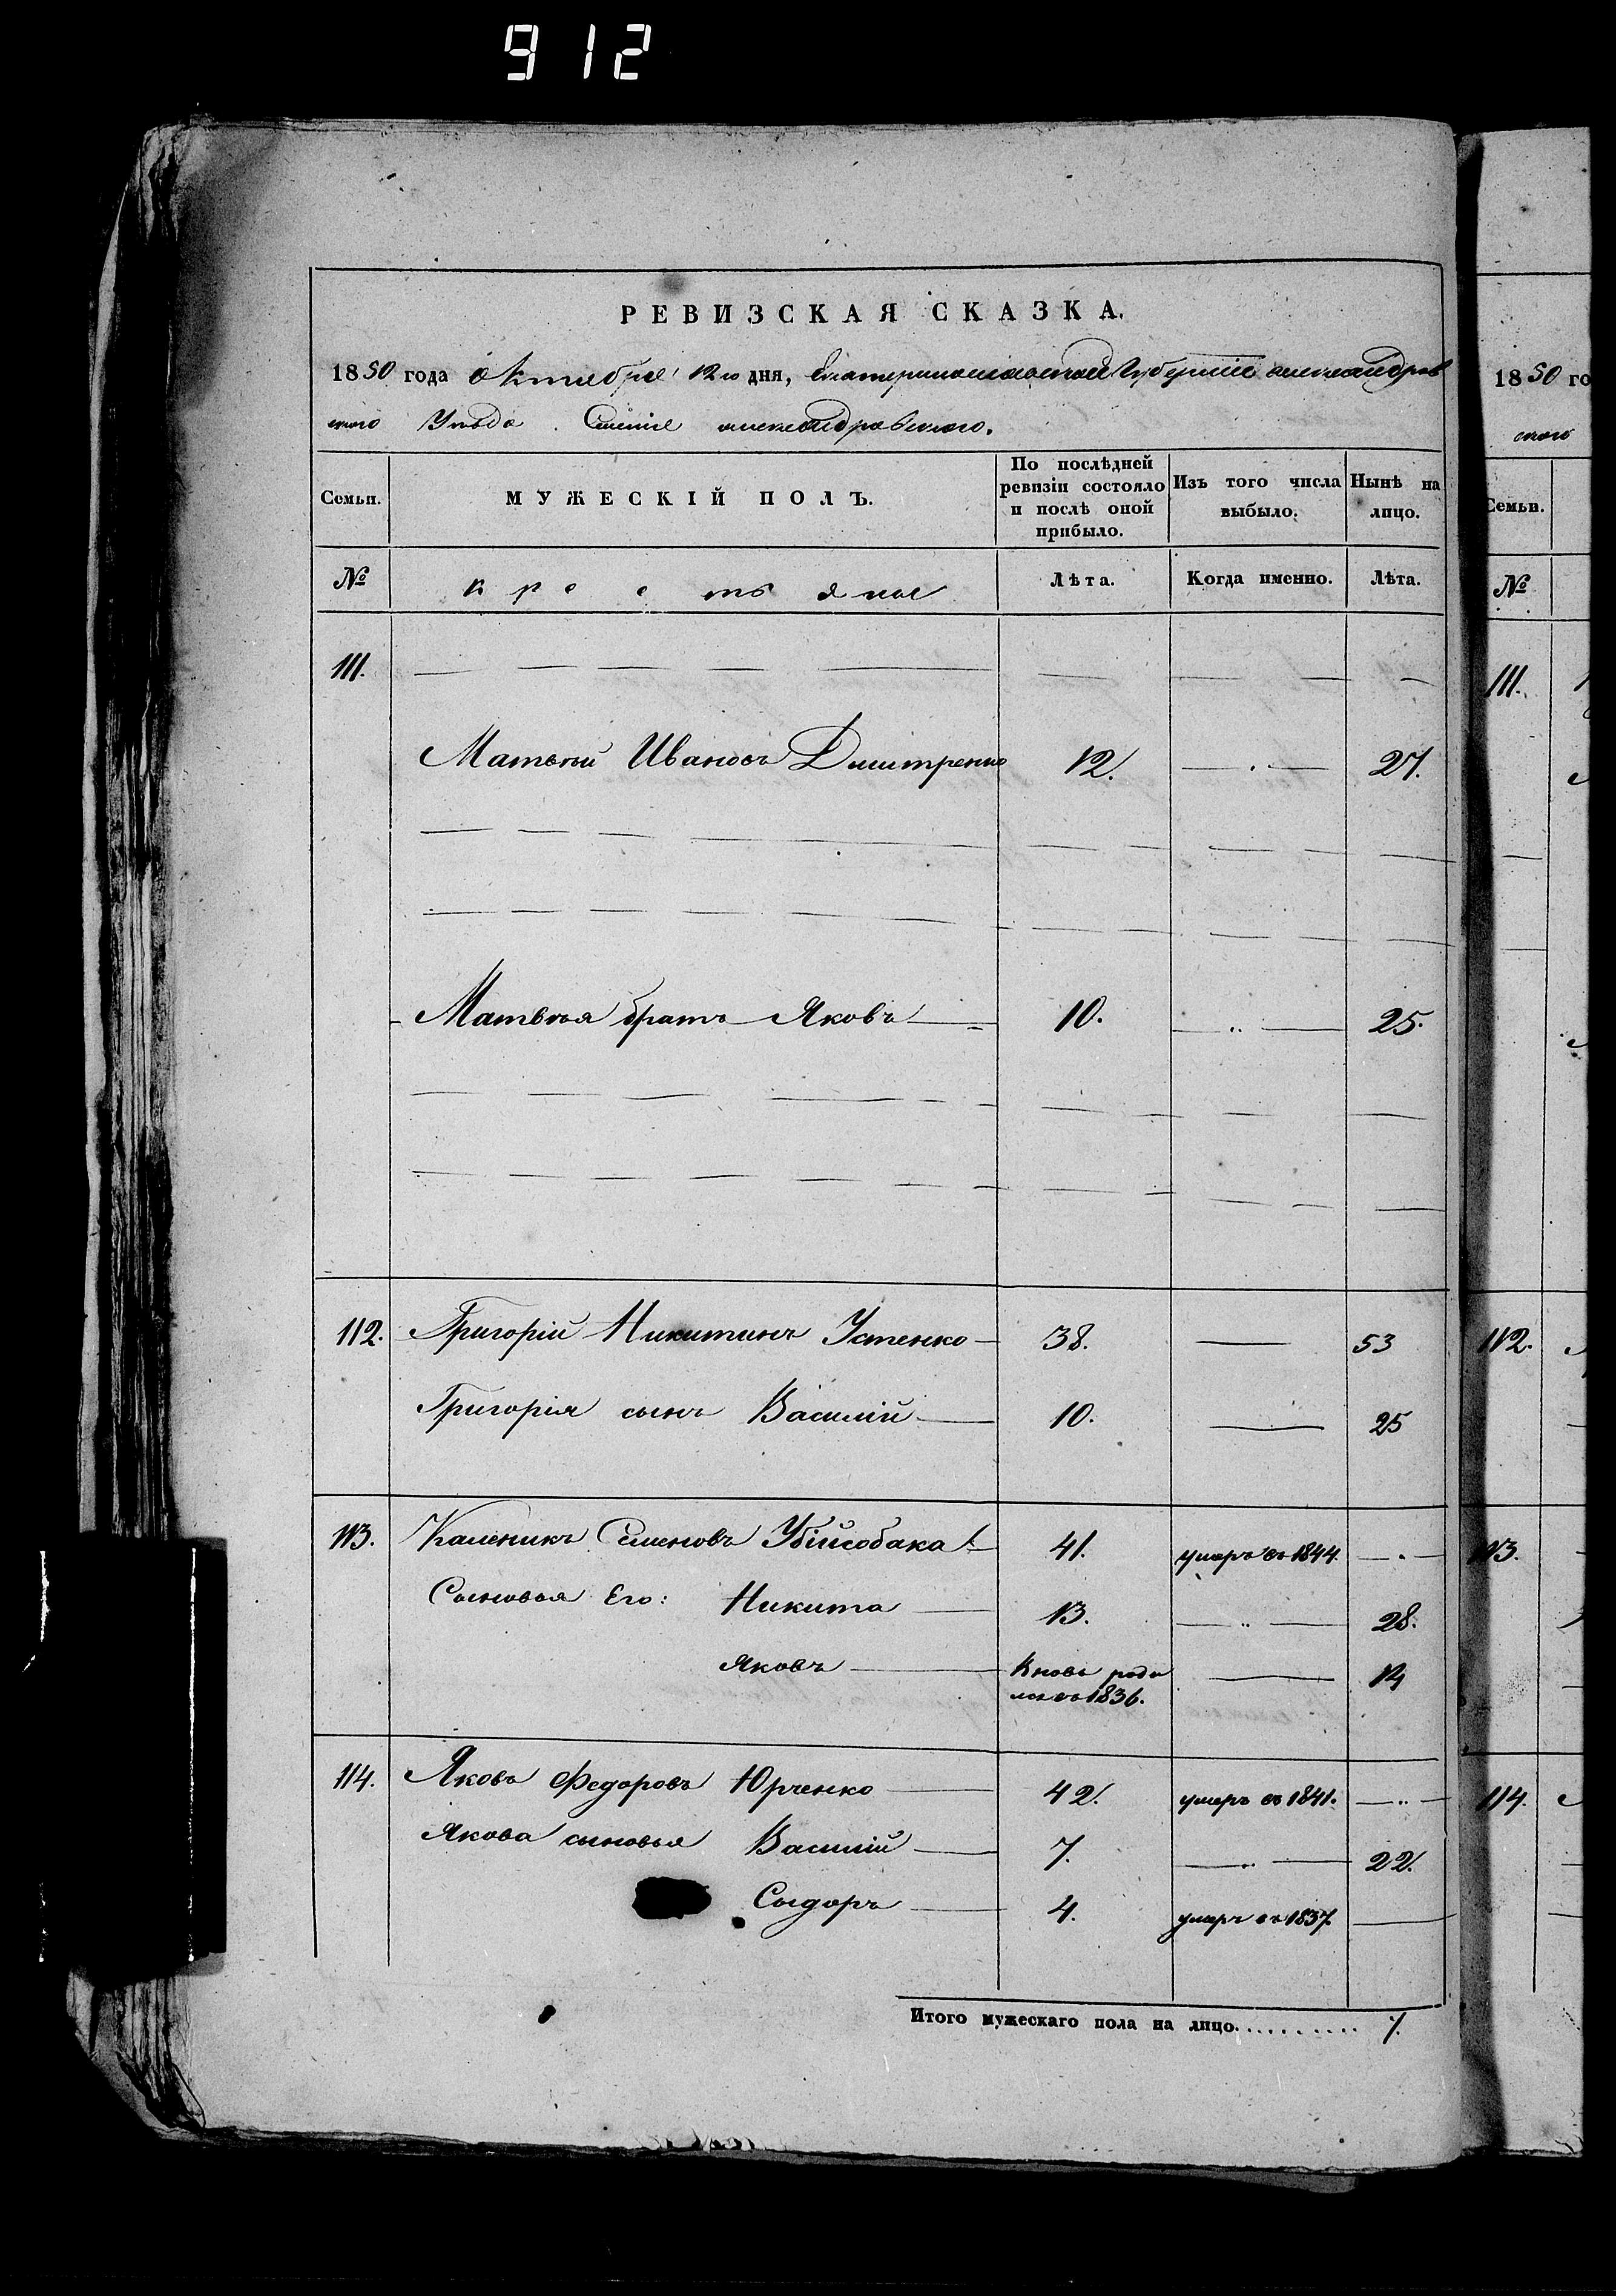 912
РЕВИЗСКАЯ СКАЗКА.
1850 года Октября 12го дня, Екатеринославской Губернiи александров
ского Уезда. Селенiе александровского.
Семьи. МУЖЕСКІЙ ПОЛЪ. По послѣдней ревизіи состояло и послѣ оной прибыло. Изъ того числа выбыло. Нынѣ на лицо.
№ крестьяне Лѣта. Когда именно. Лѣта.
111.
Матвѣй Ивановъ Дмитренко 12. 27.
Матвѣя братъ Яковъ 10. 25.
112. Григорій Никитинъ Устенко 38. 53
Григорія сынъ Василій 10. 25
113. Каленикъ Семеновъ Убійсобака 41. умеръ въ 1844.
Сыновья Его: Никита 13. 28.
Яковъ Вновь роди 14
лся въ 1836.
114. Яковъ Федоровъ Юрченко 42. умеръ въ 1841.
Якова сыновья Василій 7. 22.
Сыдоръ 4. умеръ въ 1837.
Итого мужескаго пола на лицо........... 7.
1850 го
ского
Семьи.
№
111.
112.
113.
114.